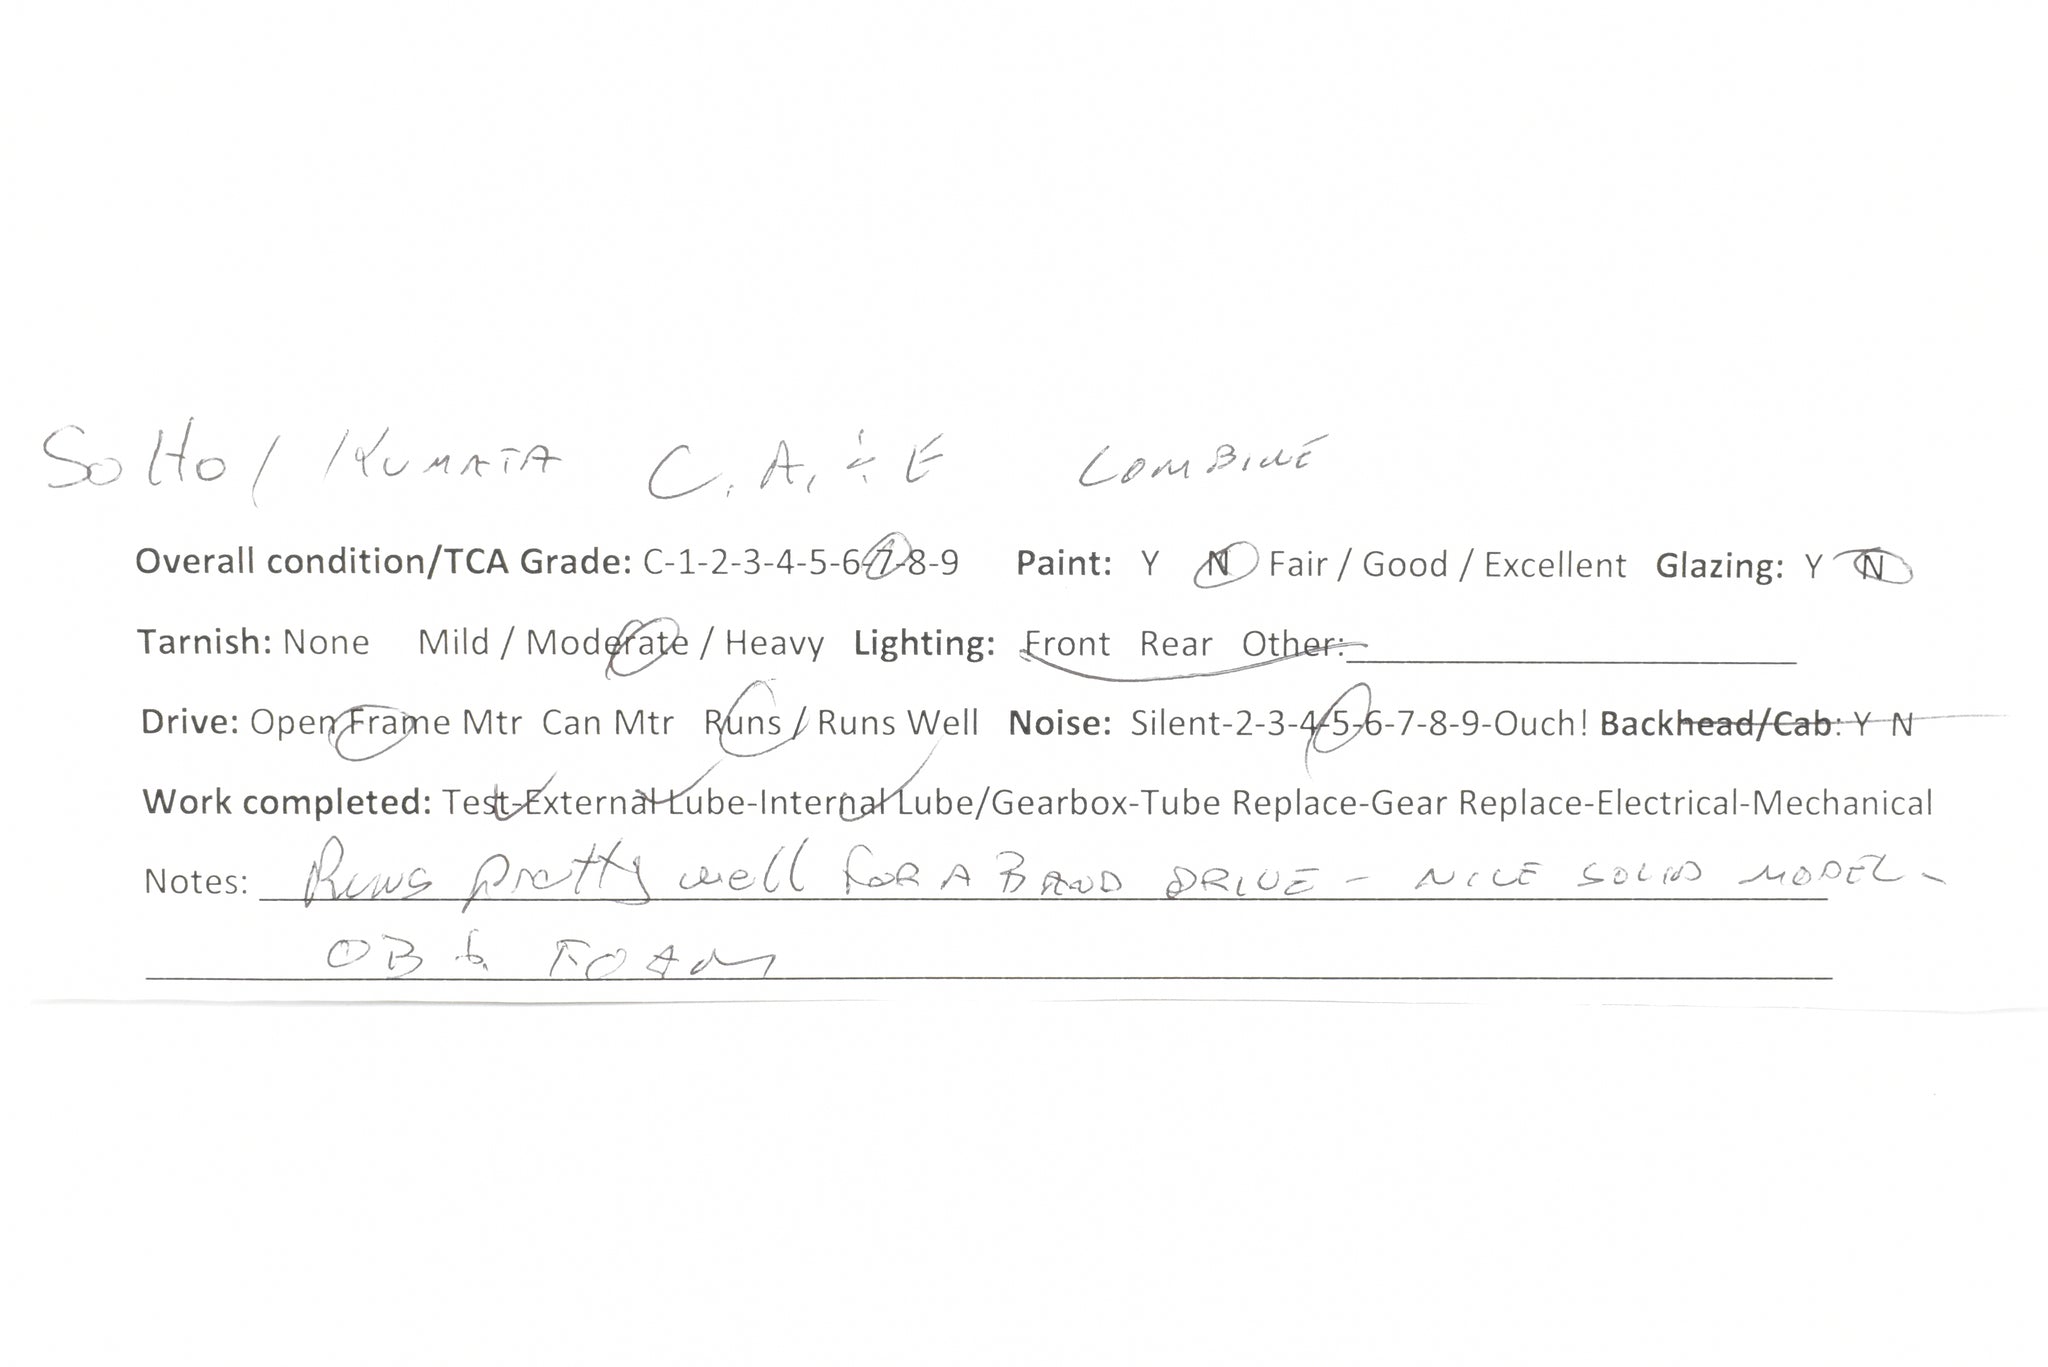 SoHo / KUMATA C.A, & E COMBINE
Overall condition/TCA Grade: C-1-2-3-4-5-6-7-8-9 Paint: Y N Fair / Good / Excellent Glazing: Y N
Tarnish: None Mild / Moderate / Heavy Lighting: Front Rear Other:
Drive: Open Frame Mtr Can Mtr Runs / Runs Well Noise: Silent-2-3-4-5-6-7-8-9-Ouch! Backhead/Cab: Y N
Work completed: Test-External Lube-Internal Lube/Gearbox-Tube Replace-Gear Replace-Electrical-Mechanical
Notes: Runs pretty well FOR A BAND DRIVE - NICE SOLID MODEL -
OB & FOAM